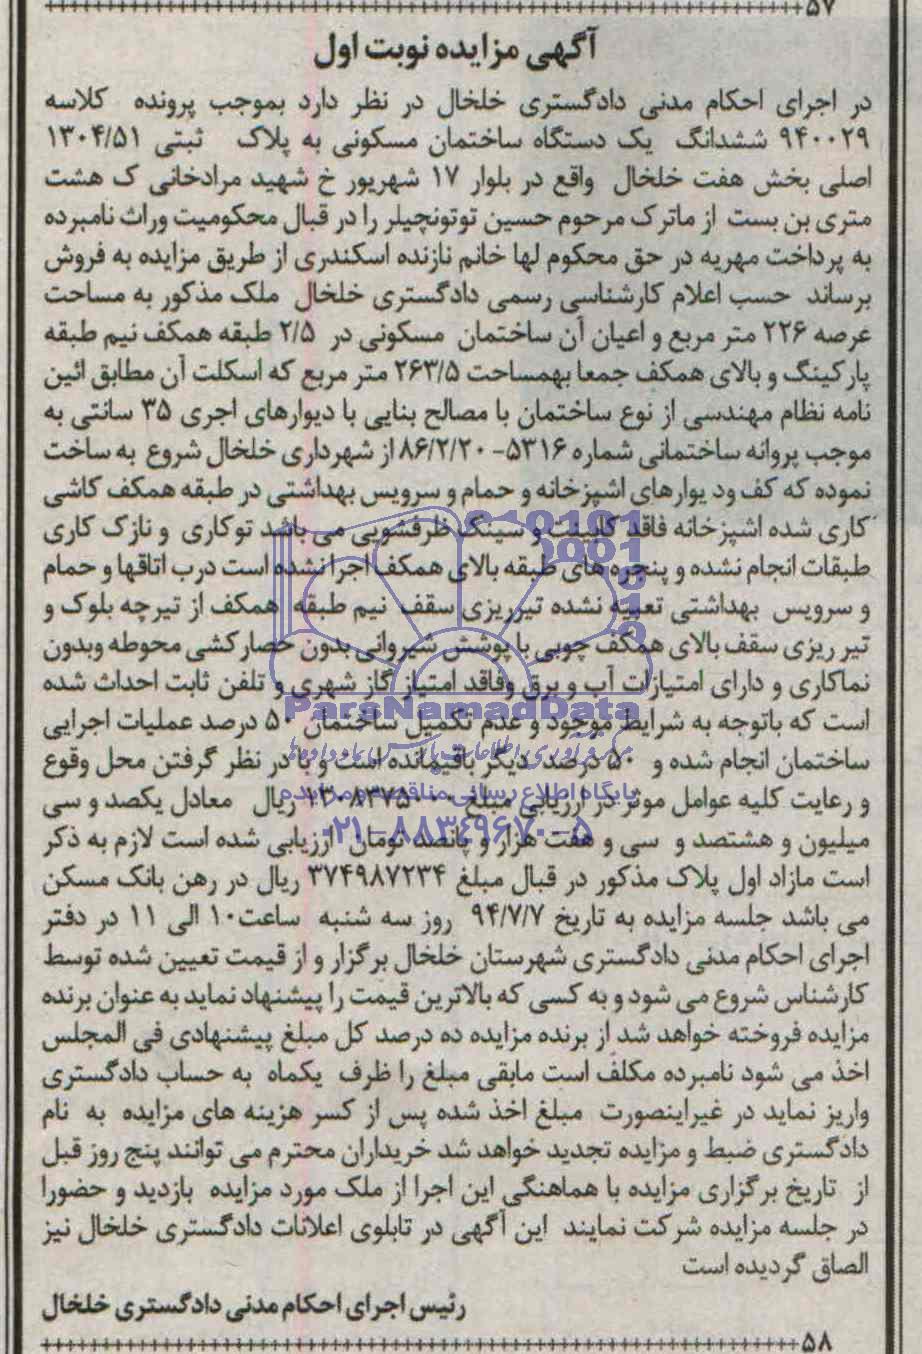 ۵۷
آگهی مزایده نوبت اول
در اجرای احکام مدنی دادگستری خلخال در نظر دارد بموجب پرونده کلاسه
۹۴۰۰۲۹ ششدانگ یک دستگاه ساختمان مسکونی به پلاک ثبتی ۱۳۰۴/۵۱
اصلی بخش هفت خلخال واقع در بلوار ۱۷ شهریور خ شهید مرادخانی ک هشت
متری بن بست از ماترک مرحوم حسین توتونچیلر را در قبال محکومیت وراث نامبرده
به پرداخت مهریه در حق محکوم لها خانم نازنده اسکندری از طریق مزایده به فروش
برساند حسب اعلام کارشناسی رسمی دادگستری خلخال ملک مذکور به مساحت
عرصه ۲۲۶ متر مربع و اعیان آن ساختمان مسکونی در ۲/۵ طبقه همکف نیم طبقه
پارکینگ و بالای همکف جمعا بهمساحت ۲۶۳/۵ متر مربع که اسکلت آن مطابق ائین
نامه نظام مهندسی از نوع ساختمان با مصالح بنایی با دیوارهای اجری ۳۵ سانتی به
موجب پروانه ساختمانی شماره ۵۳۱۶-۸۶/۲/۲۰ از شهرداری خلخال شروع به ساخت
نموده که کف ود یوارهای اشپزخانه و حمام و سرویس بهداشتی در طبقه همکف کاشی
کاری شده اشپزخانه فاقد کابینت و سینک ظرفشویی می باشد توکاری و نازک کاری
طبقات انجام نشده و پنجره های طبقه بالای همکف اجرا نشده است درب اتاقها و حمام
و سرویس بهداشتی تعبیه نشده تیرریزی سقف نیم طبقه همکف از تیرچه بلوک و
تیر ریزی سقف بالای همکف چوبی با پوشش شیروانی بدون حصارکشی محوطه وبدون
نماکاری و دارای امتیازات آب و برق وفاقد امتیاز گاز شهری و تلفن ثابت احداث شده
ParsNamadData
است که باتوجه به شرایط موجود و عدم تکمیل ساختمان ۵۰ درصد عملیات اجرایی
ساختمان انجام شده و ۵۰ درصد دیگر باقیمانده است و با در نظر گرفتن محل وقوع
پایگاه اطلاع رسانی مناقصه و مزایده
و رعایت کلیه عوامل موثر در ارزیابی مبلغ ۱۳۰۸۳۷۵۰۰۰ ریال معادل یکصد و سی
۰۲۱-۸۸۳۴۹۶۷۰-۵
میلیون و هشتصد و سی و هفت هزار و پانصد تومان ارزیابی شده است لازم به ذکر
است مازاد اول پلاک مذکور در قبال مبلغ ۳۷۴۹۸۷۲۳۴ ریال در رهن بانک مسکن
می باشد جلسه مزایده به تاریخ ۹۴/۷/۷ روز سه شنبه ساعت۱۰ الی ۱۱ در دفتر
اجرای احکام مدنی دادگستری شهرستان خلخال برگزار و از قیمت تعیین شده توسط
کارشناس شروع می شود و به کسی که بالاترین قیمت را پیشنهاد نماید به عنوان برنده
مزایده فروخته خواهد شد از برنده مزایده ده درصد کل مبلغ پیشنهادی فی المجلس
اخذ می شود نامبرده مکلف است مابقی مبلغ را ظرف یکماه به حساب دادگستری
واریز نماید در غیراینصورت مبلغ اخذ شده پس از کسر هزینه های مزایده به نام
دادگستری ضبط و مزایده تجدید خواهد شد خریداران محترم می توانند پنج روز قبل
از تاریخ برگزاری مزایده با هماهنگی این اجرا از ملک مورد مزایده بازدید و حضورا
در جلسه مزایده شرکت نمایند این آگهی در تابلوی اعلانات دادگستری خلخال نیز
الصاق گردیده است
رئیس اجرای احکام مدنی دادگستری خلخال
۵۸